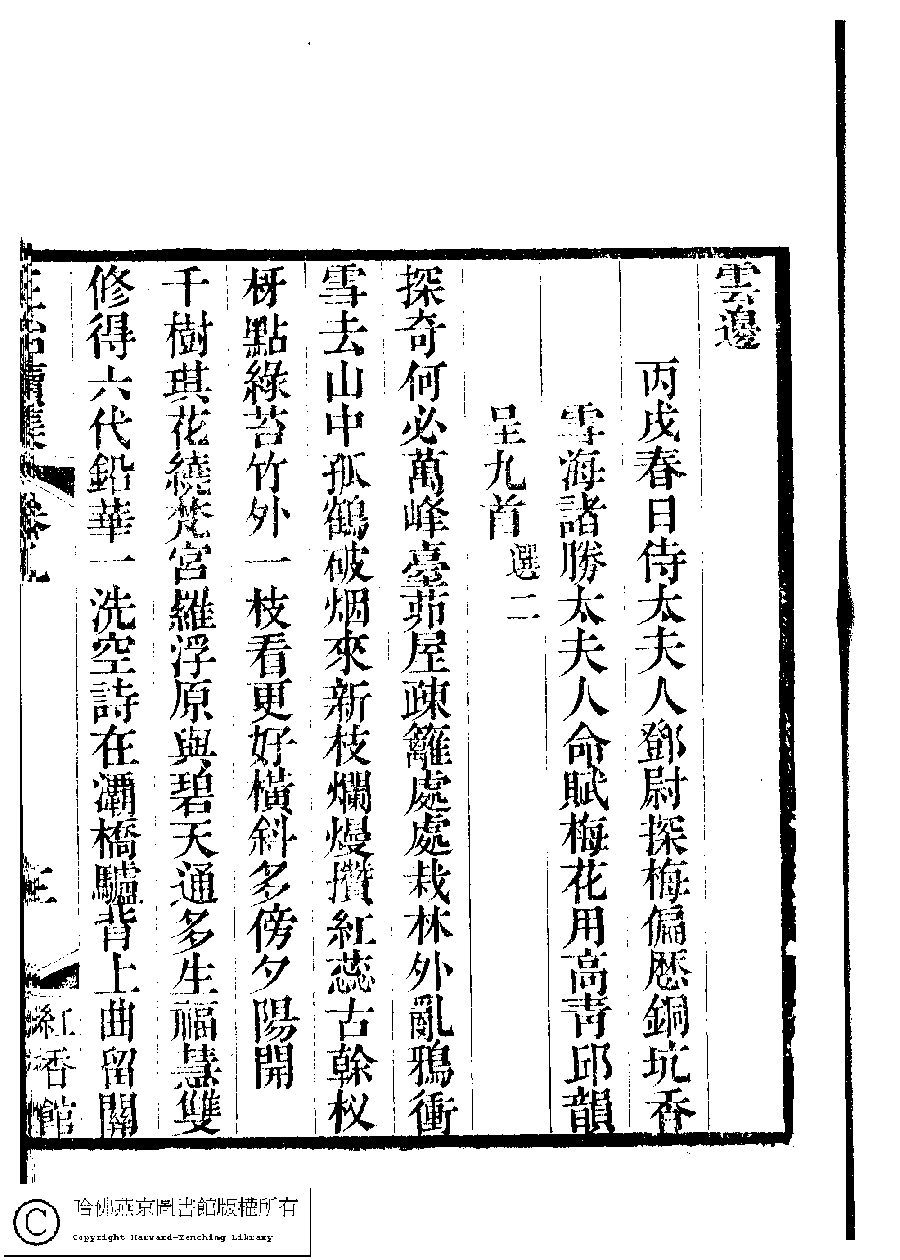 雲邊
丙戌春日侍太夫人鄧尉探梅偏歷銅坑香
雪海諸勝太夫人命賦梅花用高靑邱韻
呈九首選二
探奇何必萬峰臺茆屋疎籬處處栽林外亂鴉衝
雪去山中孤鶴破烟來新枝爛熳攢紅蕊古榦杈
枒點綠苔竹外一枝看更好橫斜多傍夕陽開
千樹琪花繞梵宮羅浮原與碧天通多生福慧雙
修得六代鉛華一洗空詩在灞橋驢背上曲留關
正始續集 卷九
紅香館
哈佛燕京圖書館版權所有
Copyright Harvard-Yenching Library